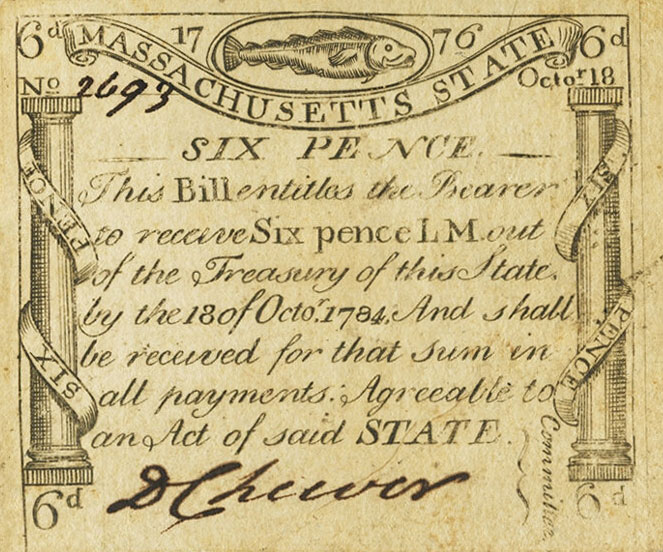 6d 17 76 6d
MASSACHUSETTS STATE
No 2693 Octor 18
SIX PENCE.
This Bill entitles the Bearer
to receive Six pence LM. out
of the Treasury of this State.
by the 18 of Octor. 1784, And shall
be received for that sum in
all payments: Agreeable to
an Act of said STATE.
SIX PENCE
SIX PENCE
Committee
D Cheever
6d 6d